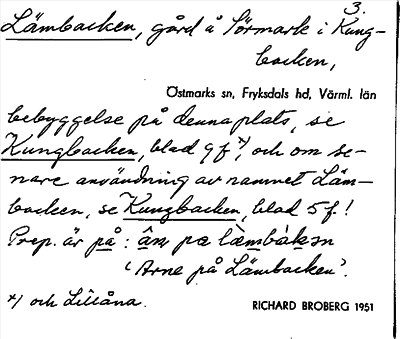 3.
Lämbacken, gård å Sörmark i Kung-
backen,
Östmarks sn, Fryksdals hd, Värml. län
bebyggelse på denna plats, se
Kungbacken, blad 9 f. x), och om se-
nare användning av namnet Läm-
backen, se Kungbacken, blad 5 f.!
Prep. är på: 
'Arne på Lämbacken'.
x) och Lillåna.
RICHARD BROBERG 1951